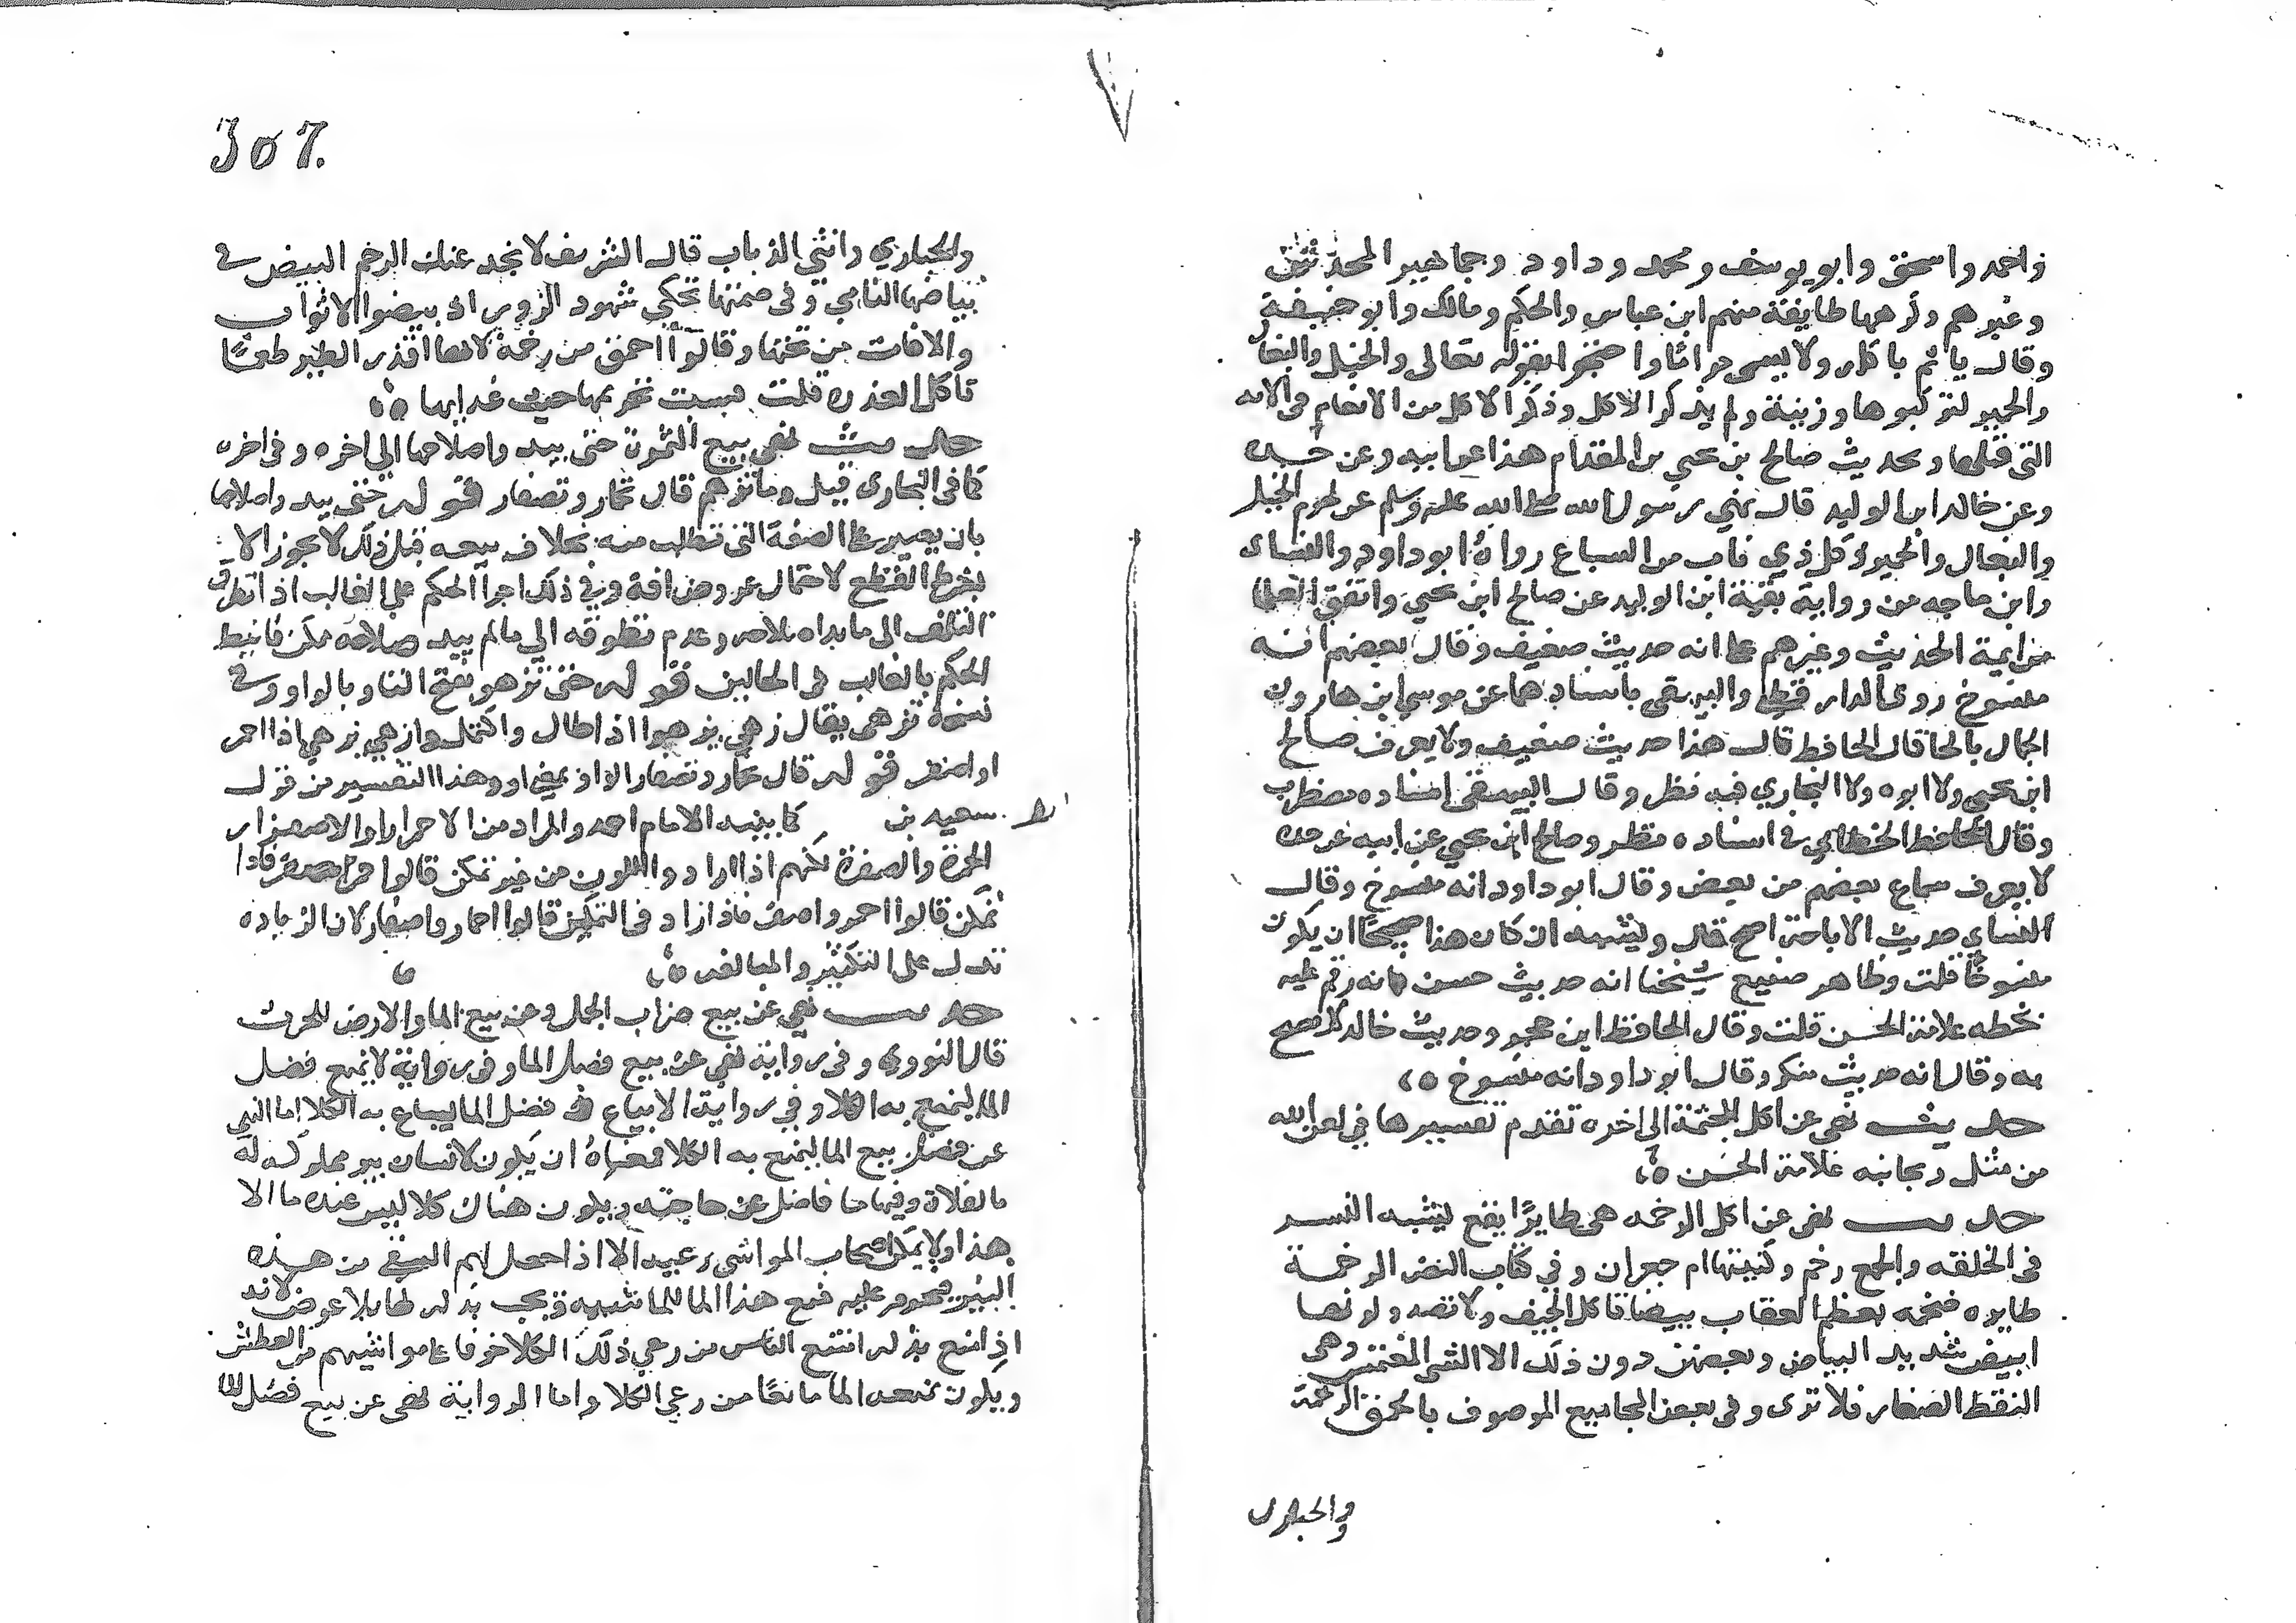 واحمد واسحق وابو يوسف ومحمد وداود وجماهير المحدثين
وغيرهم وكرهها طايفة منهم ابن عباس والحكم ومالك وابو حنيفة
وقال ياثم باكله ولا يسمى حراما واحتجوا بقوله تعالى والخيل والبغال
والحمير لتركبوها وزينة ولم يذكر الاكل وذكر الاكل من الانعام في الاية
التي قبلها وبحديث صالح بن يحيى بن المقدام هذا عن ابيه وعن جده
وعن خالد ابن الوليد قال نهي رسول الله صلى الله عليه وسلم عن لحوم الخيل
والبغال والحمير وكل ذي ناب من السباع رواه ابو داود والنساى
وابن ماجه من رواية بقية ابن الوليد عن صالح ابن يحيى واتفق العلما
من ايمة الحديث وغيرهم على انه حديث ضعيف وقال بعضهم انه
منسوخ روى الدار قطني والبيهقى باسنادهما عن موسى ابن هارون
الحمال بالحا قال الحافظ قال هذا حديث ضعيف ولا يعرف صالح
ابن يحيى ولا ابوه ولا البخاري فيه نظر وقال البيهقى اسناده مضطرب
وقال الحافظ الخطابي في اسناده نظر وصالح ابن يحيى عن ابيه عن جده
لا يعرف سماع بعضهم من بعض وقال ابو داود انه منسوخ وقال
النساي حديث الاباحة اصح قال ويشبه ان كان هذا صحيحا ان يكون
منسوخا قلت وظاهر صنيع شيخنا انه حديث حسن فانه رقم عليه
بخطه علامة الحسن قلت وقال الحافظ ابن حجر وحديث خالد لا يصح
به وقال انه حديث منكر وقال ابو داود انه منسوخ ه
حديث نهي عن اكل المجثمة الى اخره تقدم تفسيرها في لعن الله
من مثل وبجانبه علامة الحسن ه
حديث نهى عن اكل الرخمه هي طاير ابقع يشبه النسر
في الخلقه والجمع رخم وكنيتها ام جعران وفي كتاب النضر الرخمة
طايره ضخمه بعظم العقاب بيضا تاكل الجيف ولا تصيد ولونها
ابيض شديد البياض وبعضهن دون ذلك الا الشى المغتمس وهى
النقط الصغار فلا ترى وفي بعض المجاميع الموصوف بالحمق الرخمة
والحبارى
307.
والحباري وانثى الذباب قال الشريف لا نجد عنك الرخم البيض في
بياضها النامي وفى ضمنها تحكي شهود الزور اذ بيضوا الاثواب
والافات من تحتها وقالوا احمق من رخمة لانها اقذر الطير طعما
تاكل العذره قلت فسبب تحريمها خبث غدايها ه
حديث نهى بيع الثمرة حتى يبد واصلاحها الى اخره وفى اخره
كما في البخارى قيل وما تزهو قال تحمار وتصفار قوله حتى يبد واصلاحها
بان يصير على الصفة التي تطلب منه بخلاف بيعه قبل ذلك لا يجوز الا
بشرط القطع لاحتمال عروض افة وفي ذلك اجرا الحكم على الغالب اذ تطرق
التلف الى ما بداه صلاحه وعدم تطرقه الي مالم يبد صلاحه ممكن فانيط
الحكم بالغالب في الحالين قوله حتى تزهو بفتح التا وبالواو وفي
نسخة تزهى يقال زهي يزهوا اذا طال واكتمل وازهي يزهي اذا احمر
او اصفر قوله قال تحمار وتصفار الواو بمعنى او وهذا التفسير من قول
سعيد بن كما بينه الامام احمد والمراد من الاحمرار والاصفرار
الحمرة والصفرة لكنهم اذا ارادوا اللون من غير تمكن قالوا حمر وصفر فاذا
تمكن قالوا احمر واصفر فاذا زاد في التمكن قالوا احمار واصفار لان الزياده
تدل على التكثير والمبالغه ه
حديث نهي عن بيع ضراب الجمل وعن بيع الما والارض للحرث
قال النووي وفى رواية نهي عن بيع فضل الما وفى رواية لا يمنع فضل
الما ليمنع به الكلا وفي رواية الا يباع فضل الما ليباع به الكلا اما النهي
عن فضل بيع الما ليمنع به الكلا فمعناه ان يكون لانسان بير مملوكه له
بالفلاة وفيها ما فاضل عن حاجته ويكون هناك كلا ليس عنده ما الا
هذا ولا يمكن اصحاب المواشى رعيه الا اذا حصل لهم السقي من هذه
البير فيحرم عليه منع هذا الما للماشيه ويجب بذله لها بلا عوض لانه
اذا منع بذله امتنع الناس من رعي ذلك الكلا خوفا على مواشيهم من العطش
ويكون بمنعه الما مانعا من رعي الكلا واما الرواية نهى عن بيع فضل الما